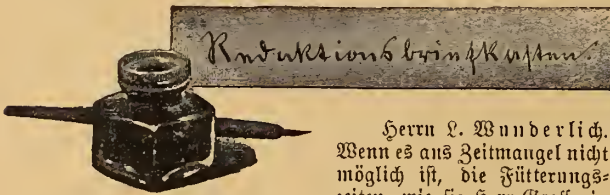 Redaktionsbriefkasten.
Herrn L. Wunderlich.
Wenn es aus Zeitmangel nicht
möglich ist, die Fütterungs-